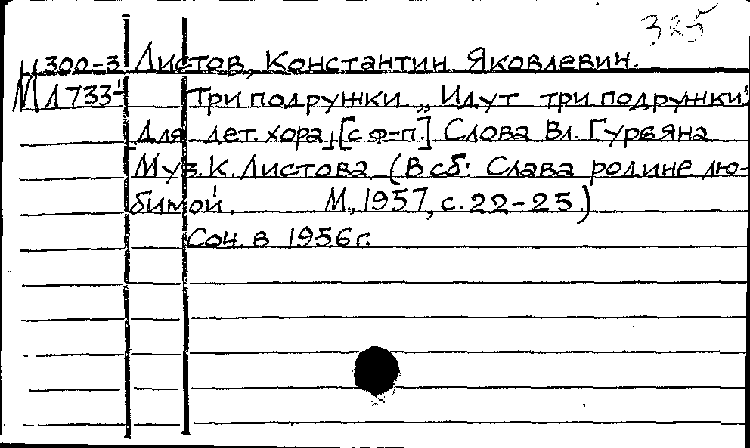 325
М 300-3 Листов, Константин Яковлевич.
М Л 733 Три подружки. „Идут три подружки".
Для дет. хора, [с ф-п.] Слова Вл. Гурвяна
Муз. К. Листова. (В сб: Слава родине лю-
бимой. М., 1957, с. 22-25)
Соч. в 1956 г.